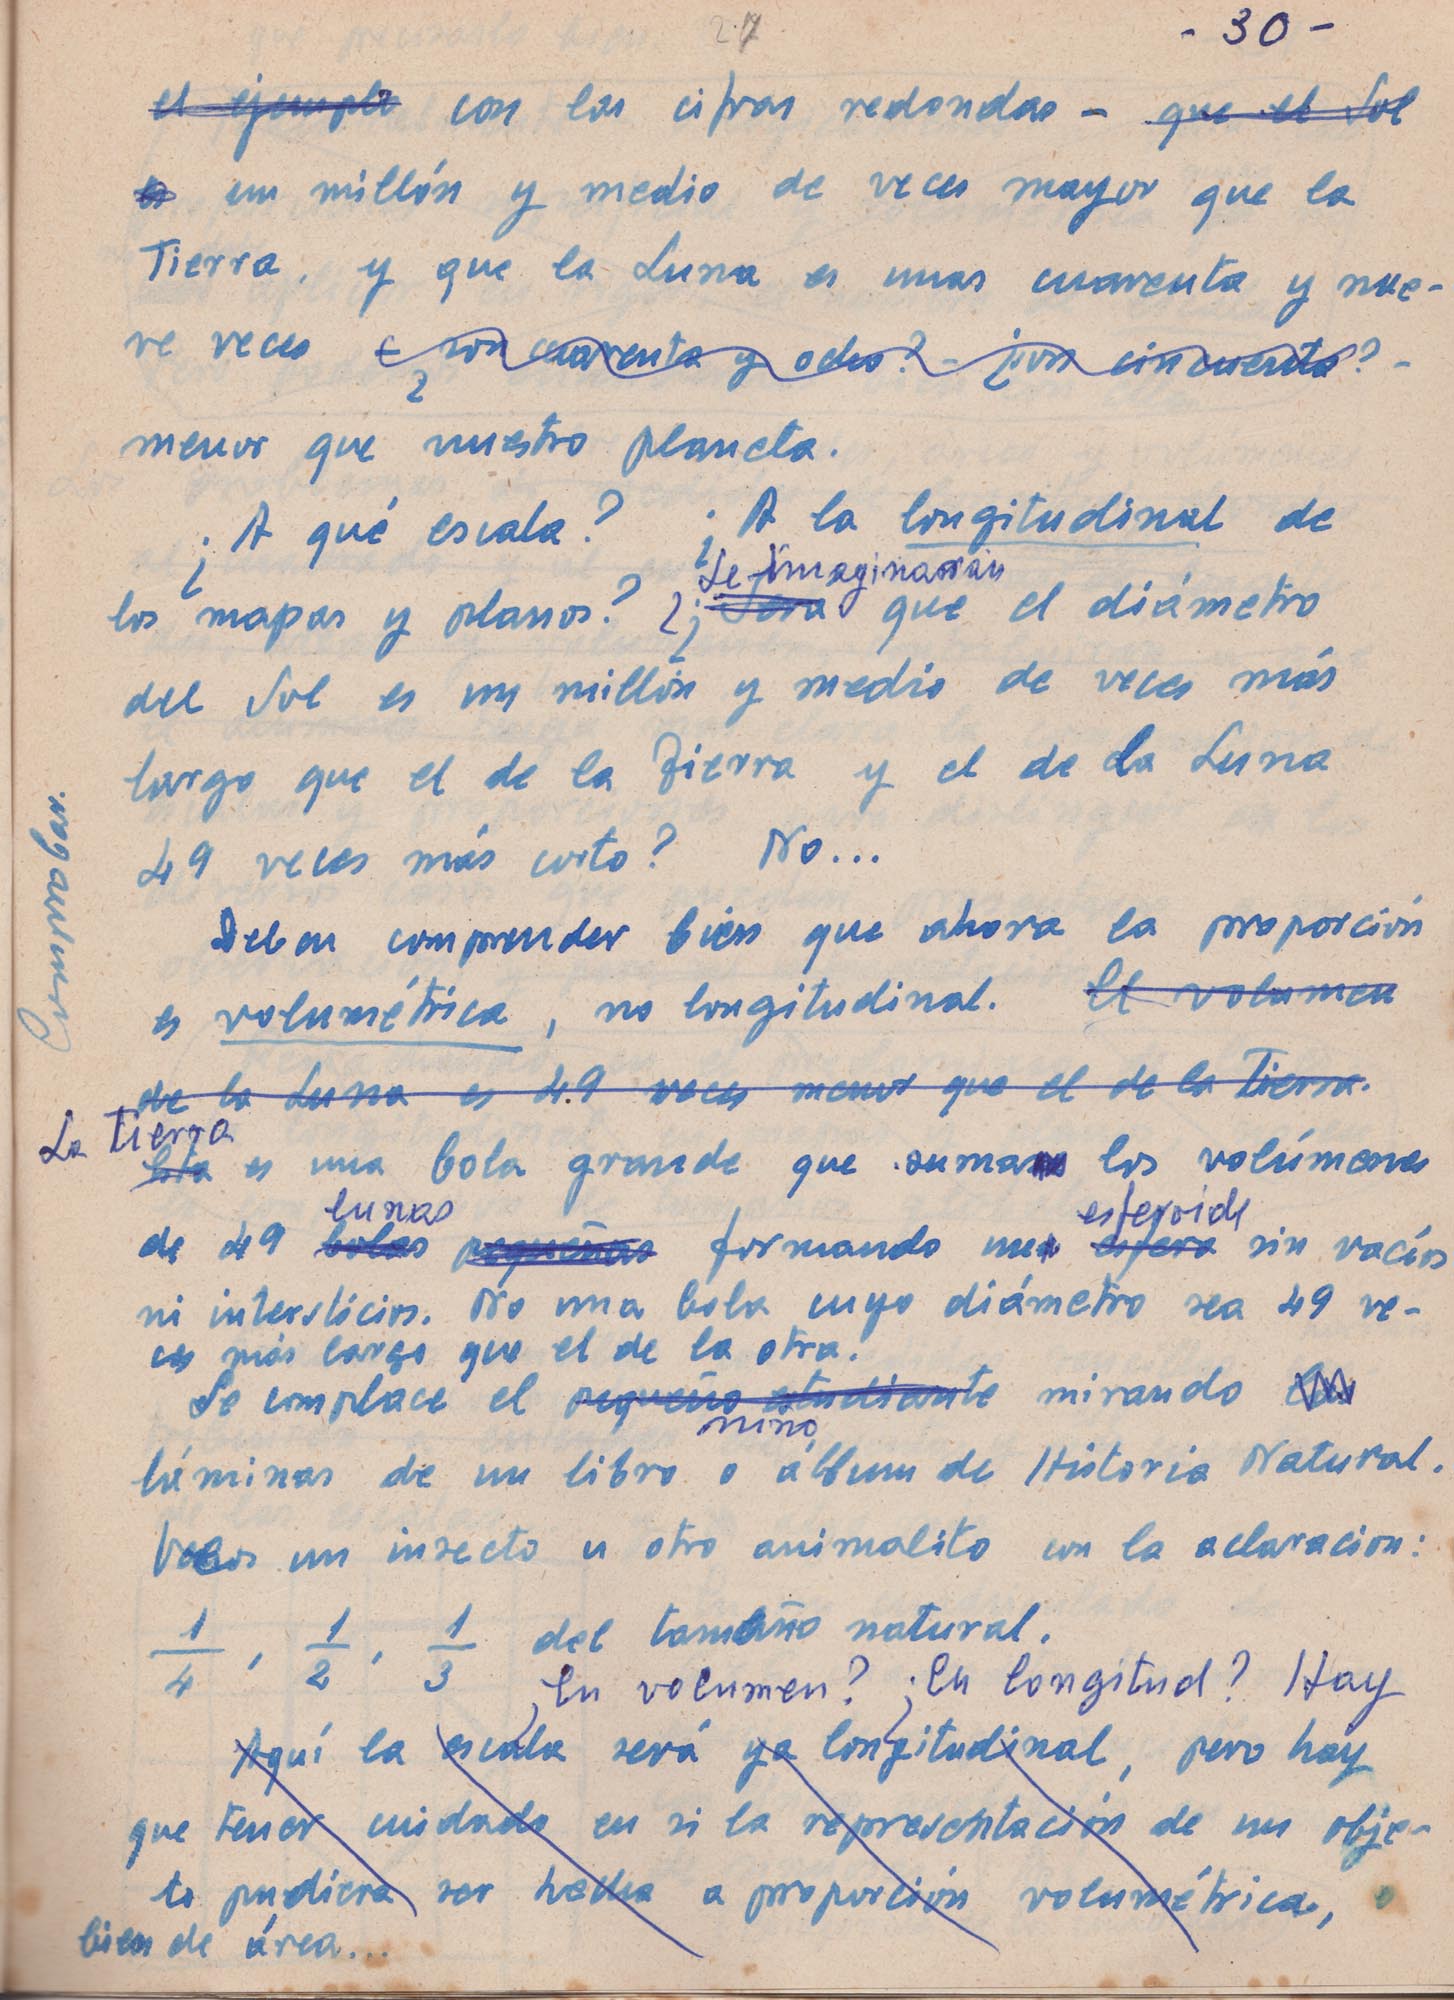 27
- 30 -
el ejemplo con las cifras redondas - que el Sol
es un millón y medio de veces mayor que la
Tierra, y que la Luna es unas cuarenta y nue-
ve veces ¿son cuarenta y ocho? - ¿son cincuenta? -
menor que nuestro planeta.
¿A qué escala? ¿A la longitudinal de
Se imaginarán
los mapas y planos? ¿Será que el diámetro
del Sol es un millón y medio de veces más
largo que el de la Tierra y el de La Luna
49 veces más corto? No...
Deben comprender bien que ahora la proporción
es volumétrica, no longitudinal. El volumen
de la Luna es 49 veces menor que el de la Tierra.
La Tierra
Esta es una bola grande que suma los volúmenes
lunas esferoide
de 49 bolas pequeñas formando una esfera sin vacíos
ni intersticios. No una bola cuyo diámetro sea 49 ve-
ces más largo que el de la otra.
Se complace el pequeño estudiante mirando
niño
láminas de un libro o álbum de Historia Natural.
Vemos un insecto u otro animalito con la aclaracion:
1/4, 1/2, 1/3 del tamaño natural.
¿En volumen? ¿En longitud? Hay
Aquí la escala será ya longitudinal, pero hay
que tener cuidado en si la representación de un obje-
to pudiera ser hecha a proporción volumétrica,
bien de área...